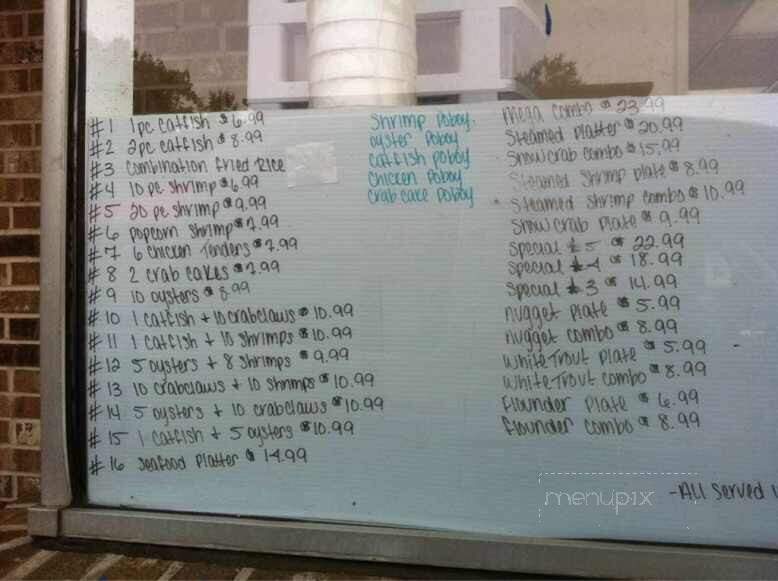 #1 1pc catfish $6.99
#2 2pc catfish $8.99
#3 combination fried Rice
#4 10 pc shrimp $6.99
#5 20 pc shrimp $9.99
#6 popcorn shrimp $7.99
#7 6 chicken Tenders $7.99
#8 2 crab cakes $7.99
#9 10 oysters $8.99
#10 1 catfish + 10 crabclaws $10.99
#11 1 catfish + 10 shrimps $10.99
#12 5 oysters + 8 shrimps $9.99
#13 10 crabclaws + 10 shrimps $10.99
#14 5 oysters + 10 crabclaws $10.99
#15 1 catfish + 5 oysters $10.99
#16 seafood Platter $14.99
Shrimp Poboy
oyster Poboy
catfish poboy
chicken Poboy
crab cake Poboy
mega combo $23.99
Steamed Platter $20.99
Snowcrab combo $15.99
Steamed Shrimp plate $8.99
Steamed Shrimp combo $10.99
Snow crab Plate $9.99
Special #5 $22.99
Special #4 $18.99
Special #3 $14.99
nugget Plate $5.99
nugget combo $8.99
White Trout Plate $5.99
White Trout combo $8.99
Flounder Plate $6.99
flounder combo $8.99
-All Served
menupix